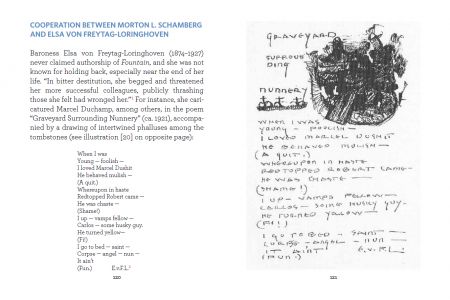 COOPERATION BETWEEN MORTON L. SCHAMBERG
AND ELSA VON FREYTAG-LORINGHOVEN
Baroness Elsa von Freytag-Loringhoven (1874–1927)
never claimed authorship of Fountain, and she was not
known for holding back, especially near the end of her
life. “In bitter destitution, she begged and threatened
her more successful colleagues, publicly thrashing
those she felt had wronged her.”¹ For instance, she cari-
catured Marcel Duchamp, among others, in the poem
“Graveyard Surrounding Nunnery” (ca. 1921), accompa-
nied by a drawing of intertwined phalluses among the
tombstones (see illustration [20] on opposite page):
When I was
Young — foolish —
I loved Marcel Dushit
He behaved mulish —
(A quit.)
Whereupon in haste
Redtopped Robert came —
He was chaste —
(Shame!)
I up — vamps fellow —
Carlos — some husky guy.
He turned yellow—
(Fi!)
I go to bed — saint —
Corpse — angel — nun —
It ain't
(Fun.) E.v.F.L.²
220
GRAVEYARD
SURROUN
DING
NUNNERY
WHEN I WAS
YOUNG – FOOLISH –
I LOVED MARCEL DUSHIT
HE BEHAVED MULISH –
(A QUIT.)
WHEREUPON IN HASTE
REDTOPPED ROBERT CAME–
HE WAS CHASTE –
(SHAME!)
I UP – VAMPS FELLOW –
CARLOS – SOME HUSKY GUY.
HE TURNED YELLOW –
(FI!)
I GO TO BED – SAINT –
CORPSE – ANGEL – NUN –
IT AIN'T
(FUN.) E.V.F.L.
221